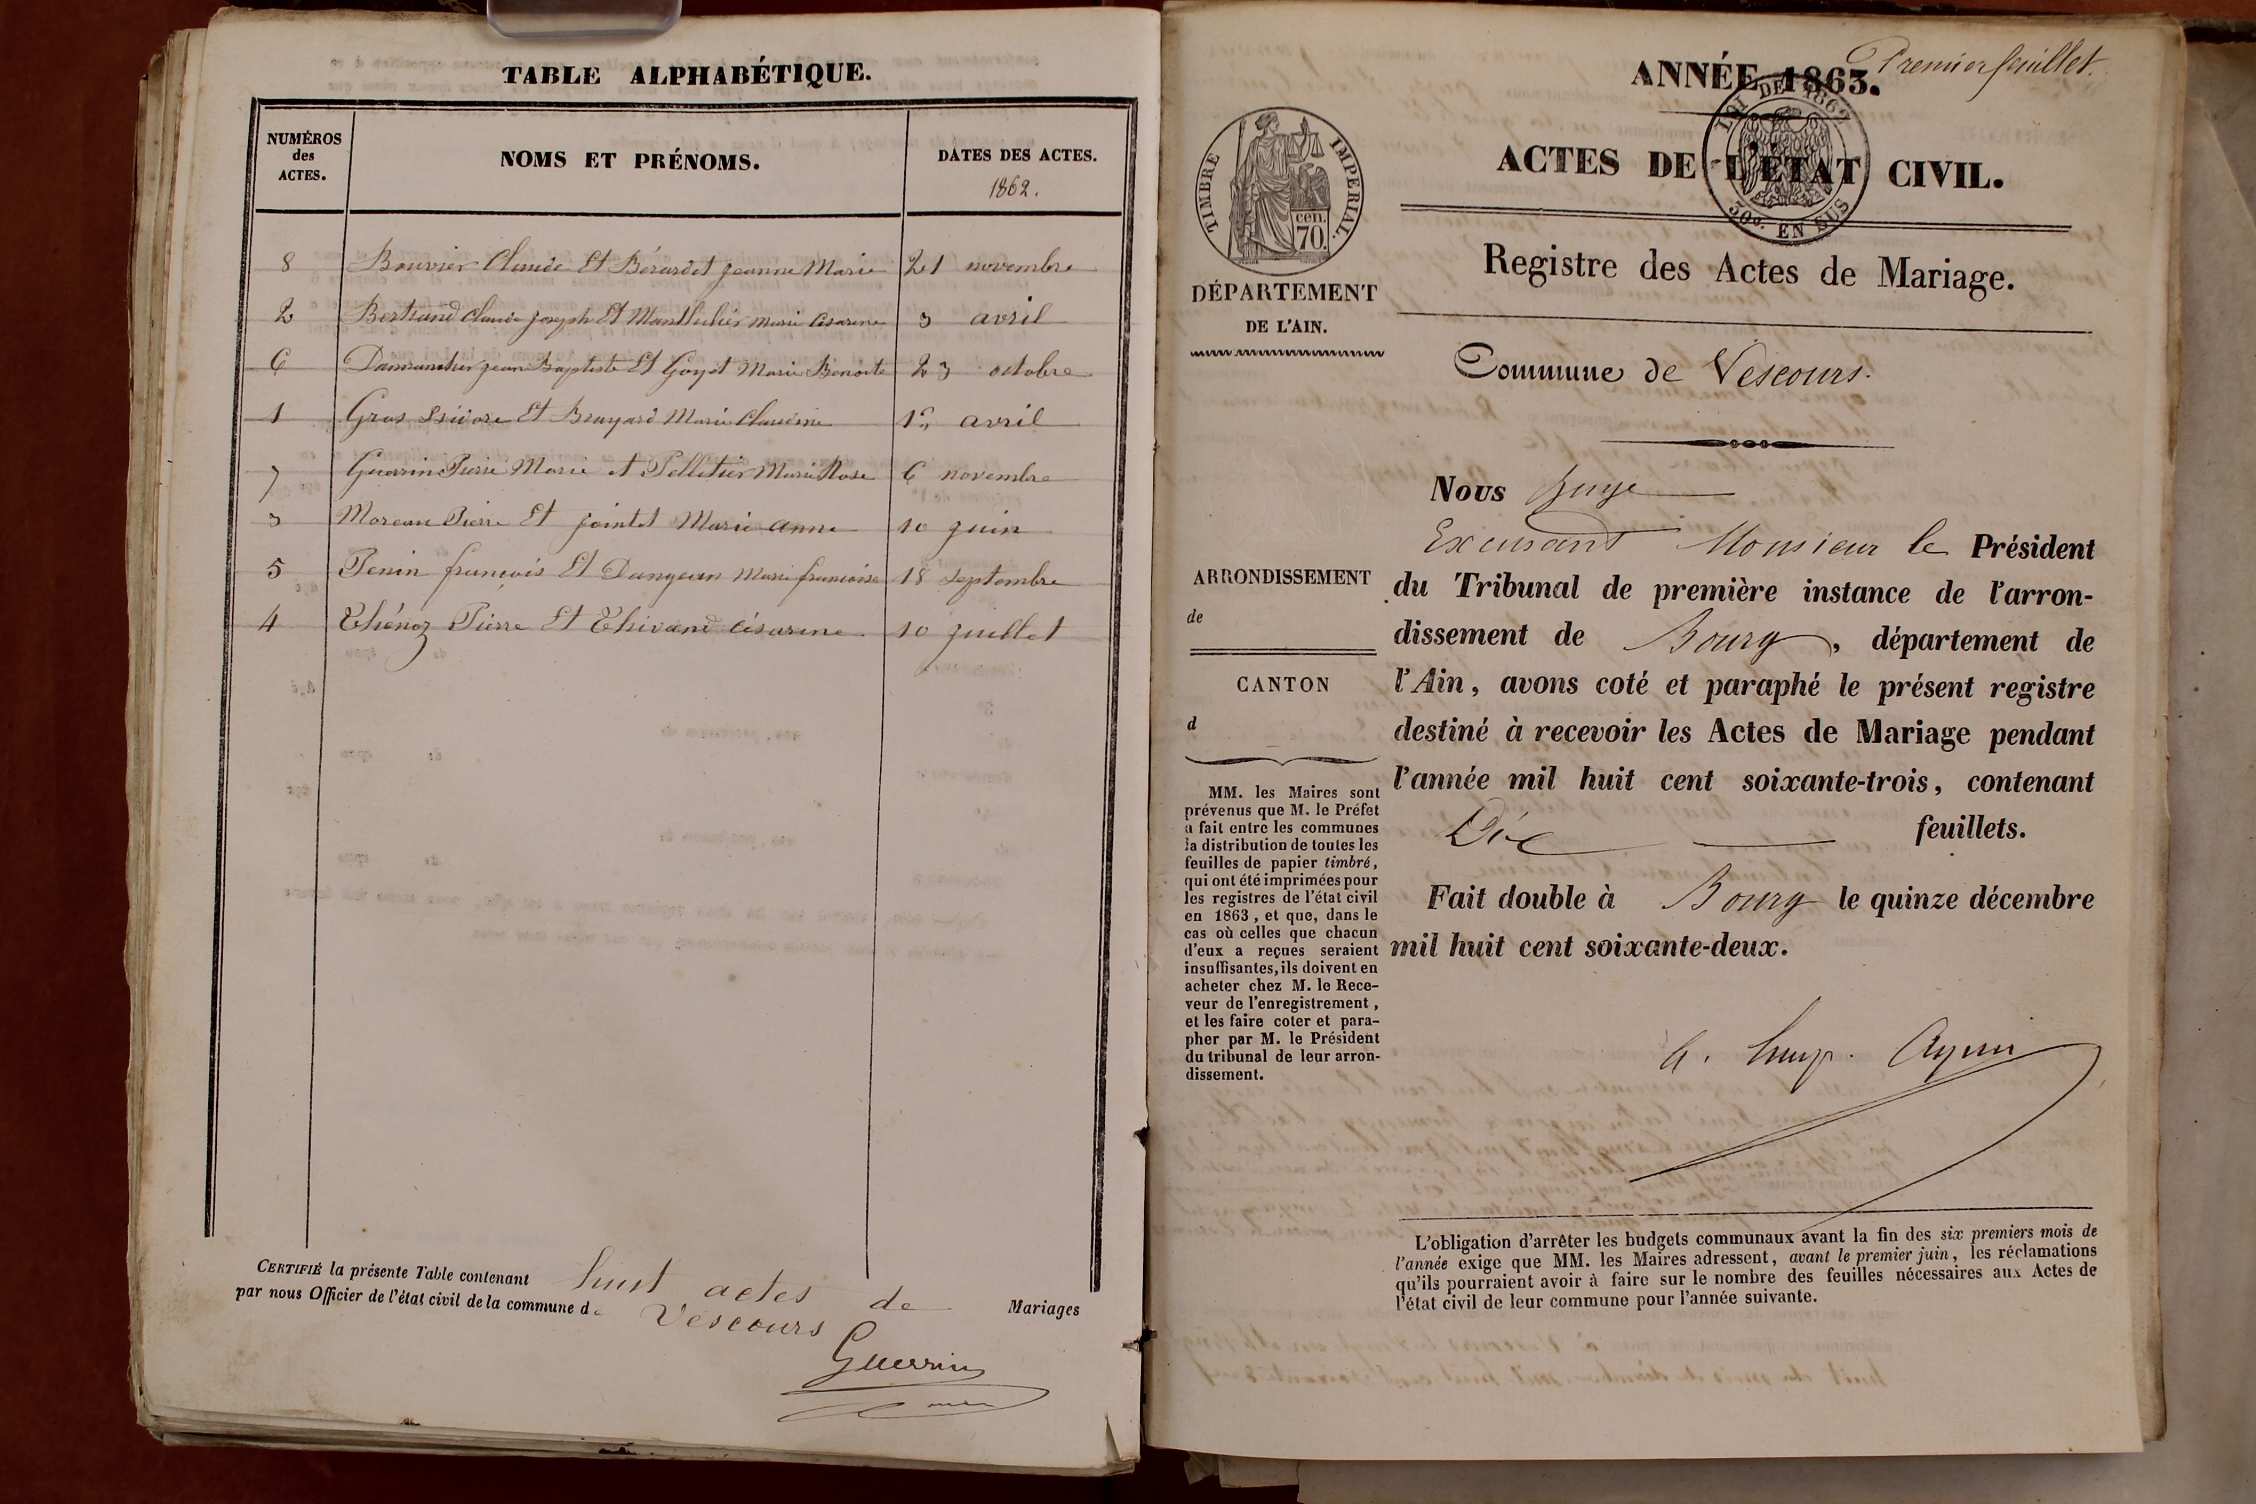 TABLE ALPHABÉTIQUE.
NUMÉROS
des
ACTES.
NOMS ET PRÉNOMS.
DATES DES ACTES.
1862.
8 Bouvier Claude Et Bérardet jeanne Marie 21 novembre
2 Bertrand claude joseph Et Marie Césarine 3 avril
6 jean Baptiste Et Goyet Marie Benoite 23 octobre
1 Gros Isidore Et Brayard Marie Claudine 1er avril
7 Guerrin Pierre Marie et Pelletier Marie Rose 6 novembre
3 Moreau Pierre Et jointet Marie anne 10 juin
5 Penin françois Et Dangean Marie françoise 18 septembre
4 Thénoz Pierre Et Thivand césarine 10 juillet
CERTIFIÉ la présente Table contenant huit actes de Mariages
par nous Officier de l'état civil de la commune de Vescours
Guerrin
maire
Premier feuillet.
ANNÉE 1863.
LOI DE 1862
50c. EN SUS
ACTES DE L'ÉTAT CIVIL.
TIMBRE IMPÉRIAL.
cen.
70.
Registre des Actes de Mariage.
DÉPARTEMENT
DE L'AIN.
Commune de Vescours.
Nous Juge
Excusant Monsieur le Président
du Tribunal de première instance de l'arron-
dissement de Bourg, département de
l'Ain, avons coté et paraphé le présent registre
destiné à recevoir les Actes de Mariage pendant
l'année mil huit cent soixante-trois, contenant
Dix feuillets.
Fait double à Bourg le quinze décembre
mil huit cent soixante-deux.
ARRONDISSEMENT
de
CANTON
d
MM. les Maires sont
prévenus que M. le Préfet
a fait entre les communes
la distribution de toutes les
feuilles de papier timbré,
qui ont été imprimées pour
les registres de l'état civil
en 1863, et que, dans le
cas où celles que chacun
d'eux a reçues seraient
insuffisantes, ils doivent en
acheter chez M. le Rece-
veur de l'enregistrement,
et les faire coter et para-
pher par M. le Président
du tribunal de leur arron-
dissement.
L'obligation d'arrêter les budgets communaux avant la fin des six premiers mois de
l'année exige que MM. les Maires adressent, avant le premier juin, les réclamations
qu'ils pourraient avoir à faire sur le nombre des feuilles nécessaires aux Actes de
l'état civil de leur commune pour l'année suivante.